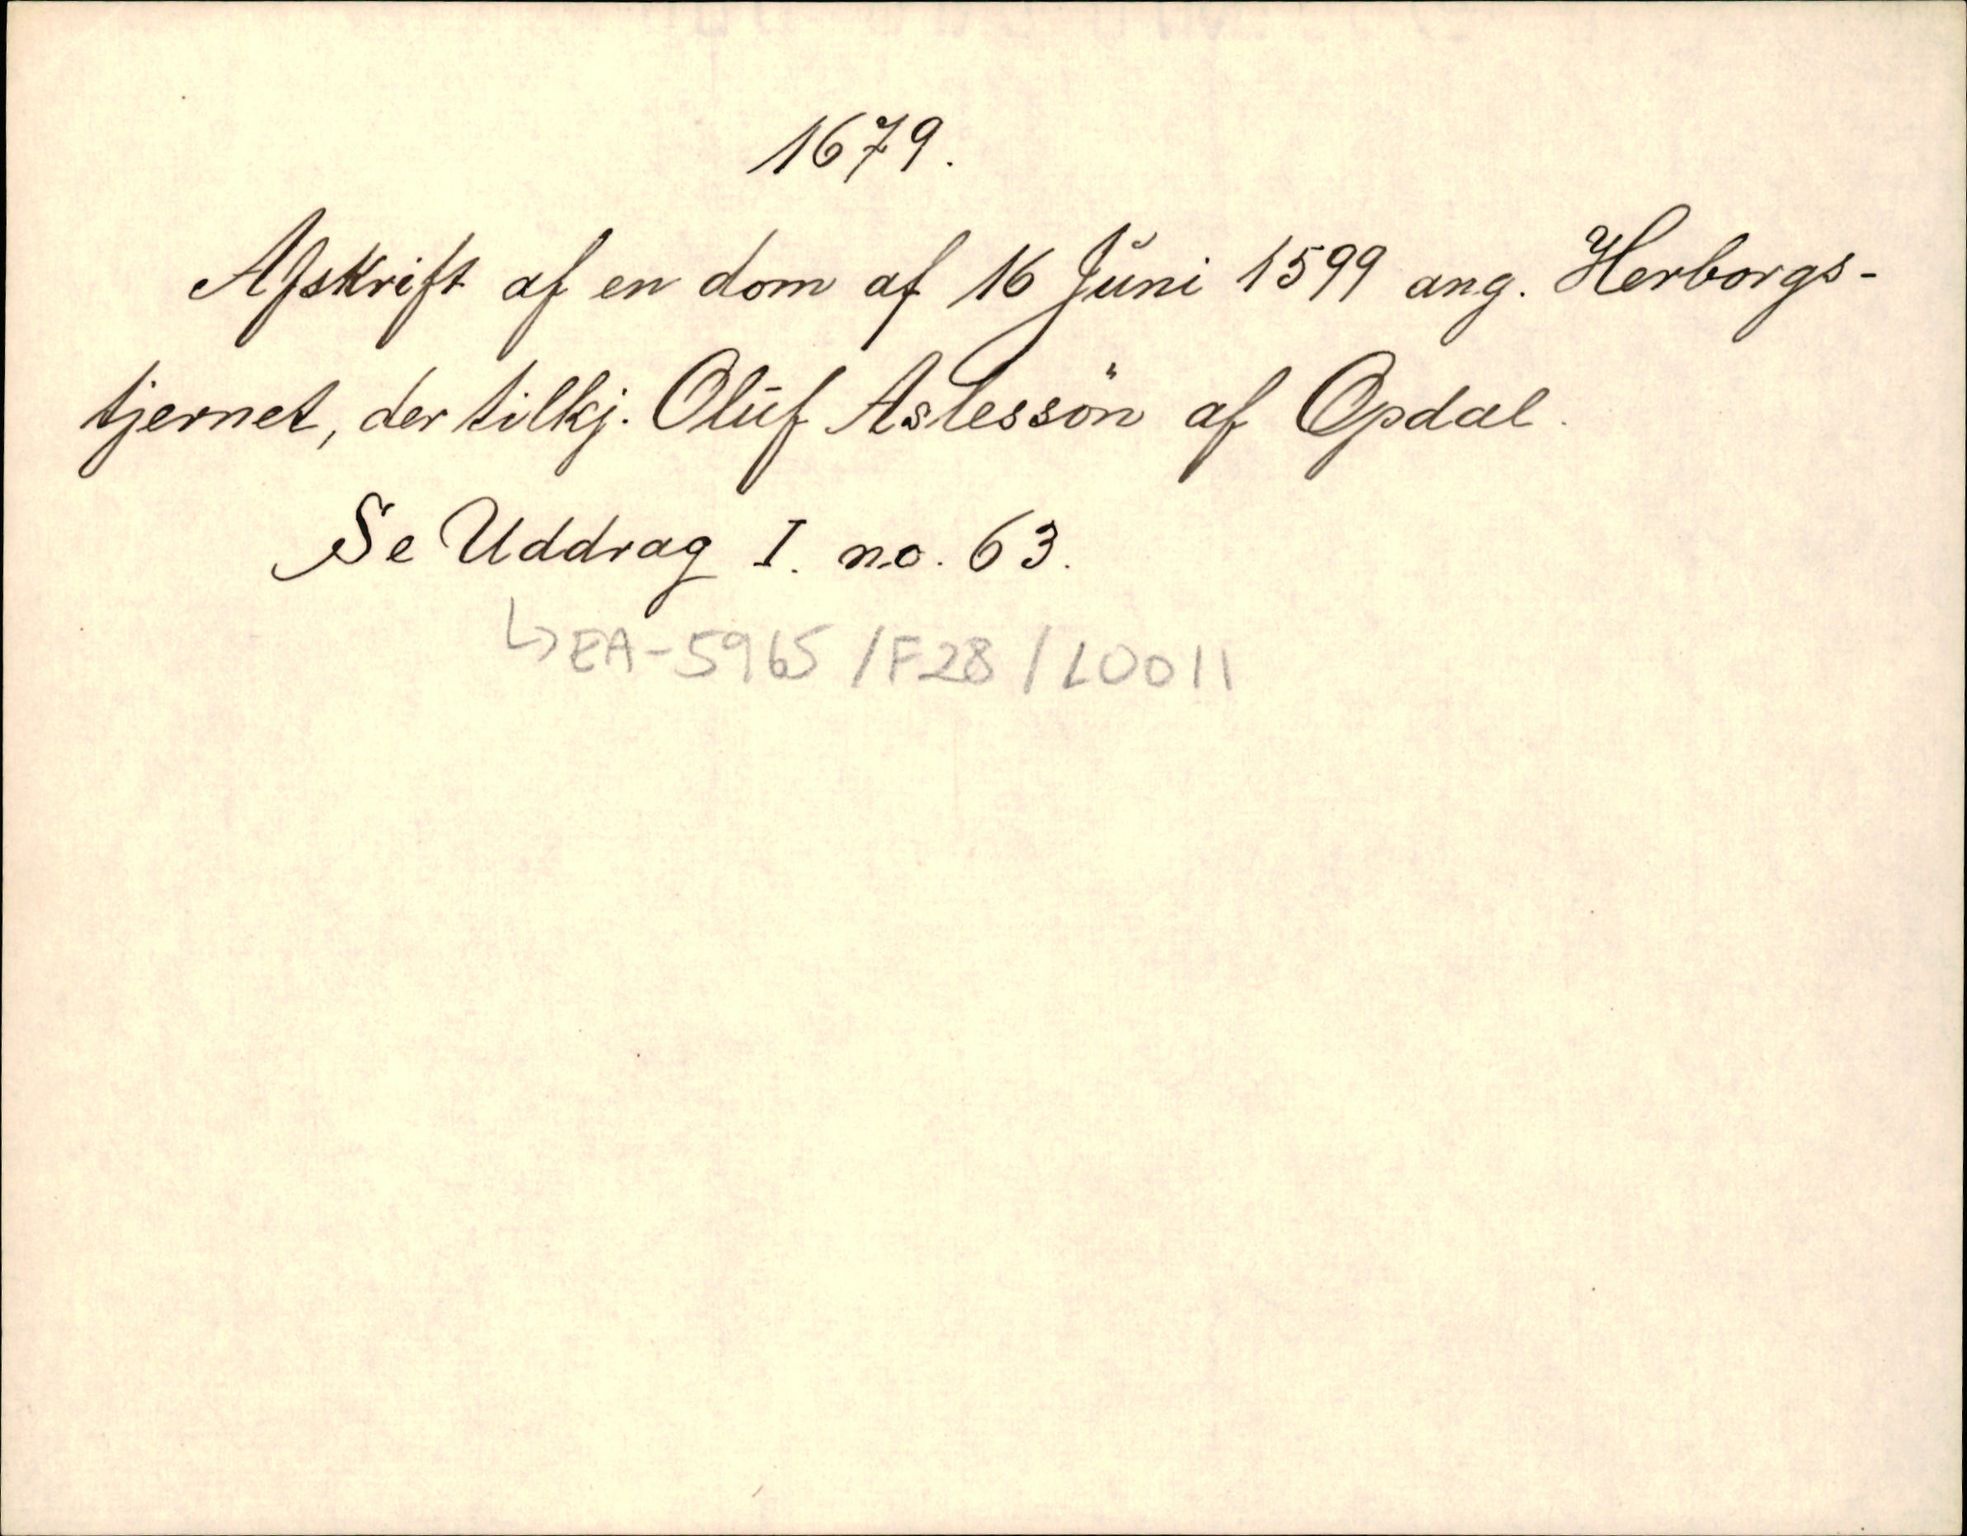 1679.
Afskrift af en dom af 16 Juni 1599 ang. Herborgs-
tjernet, der tilkj. Oluf Aslessön af Opdal.
Se Uddrag I. no. 63.
↳ EA-5965 / F28 / L0011